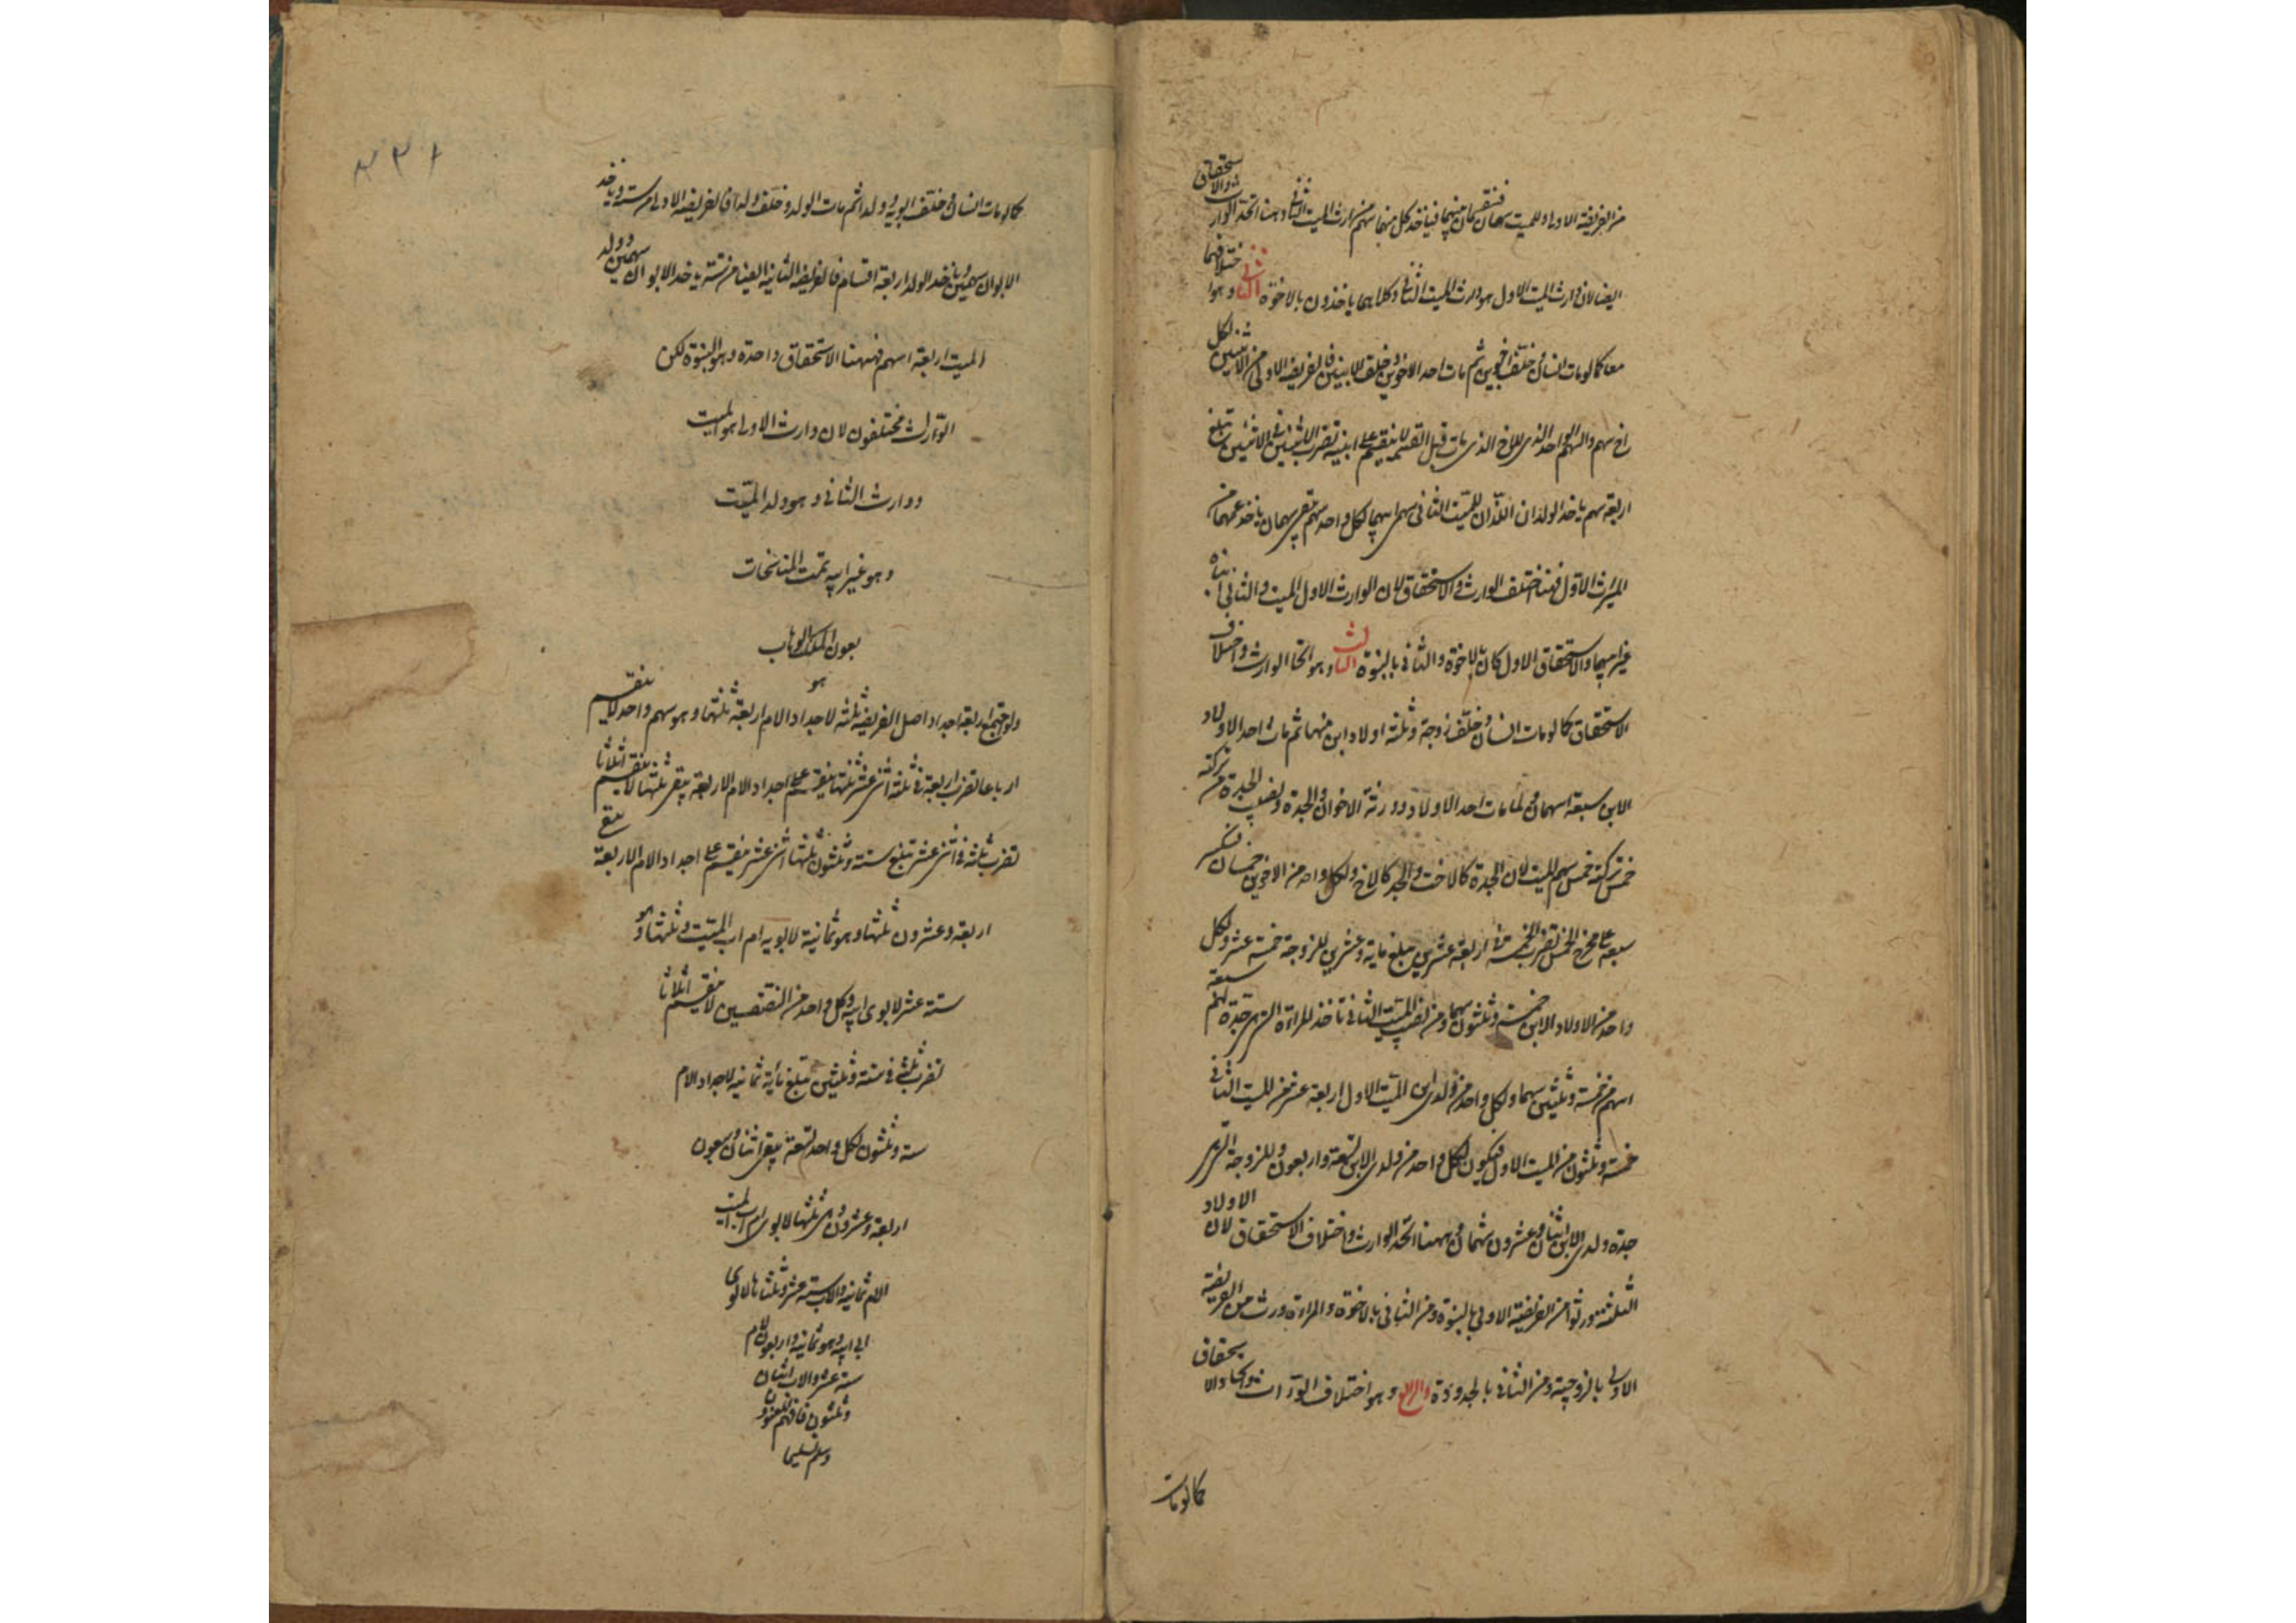 من الفريضة الاولى وللميت سهمان فتقسمان منهما فياخذ كل منهما سهم من ارث الميت الثاني وهنا اتحد الوارث والاستحقاق
ايضا لان وارث الميت الاول هو وارث الميت الثاني وكلاهما ياخذون بالاخوة الثاني وهو اختلافهما
معا كما لو مات انسان وخلف اخوين ثم مات احد الاخوين وخلف الابنين فالفريضة الاولى من الاثنين لكل
اخ سهم والسهم الواحد الذي للاخ الذي مات قبل القسمة لا ينقسم على ابنيه تضرب الاثنين في الاثنين تبلغ
اربعة سهم ياخذ الولدان اللذان للميت الثاني سهم ابيهما لكل واحد سهم يبقى سهمان ياخذ عمهما من
الميراث الاول فهنا اختلف الوارث والاستحقاق لان الوارث الاول الميت والثاني ابناه
غير ابيهما والاستحقاق الاول كان بالاخوة والثاني بالبنوة الثالث وهو اتحاد الوارث واختلاف
الاستحقاق كما لو مات انسان وخلف زوجة وثلثة اولاد ابن منهما ثم مات احد الاولاد
الابن سبعة اسهمان لما مات احد الاولاد وورثة الاخوان والجدة ونصيب الجدة من تركته
خمس تركته خمس سهم الميت لان الجدة كالاخت والجد كالاخ ولكل واحد من الاخوين خمسان تنكسر
سبعة على مخرج الخمس تضرب الخمسة في اربعة عشرين مبلغ ماية وعشرين للزوجة خمسة عشر ولكل
واحد من الاولاد الابن خمسة وثلثون سهما ومن نصيب الميت الثاني تاخذ المراة التي جدة لهم سبعة
اسهم من خمسة وثلثين سهما ولكل واحد من ولدي الميت الاول اربعة عشر من الميت الثاني
خمسة وثلثون من الميت الاول فيكون لكل واحد من ولدي الابن تسعة واربعون وللزوجة التي
جدة ولدي الابن اثنان وعشرون سهما فههنا اتحد الوارث واختلاف الاستحقاق لان الاولاد
الثلثة ورثوا من الفريضة الاولى بالبنوة ومن الثاني بالاخوة والمراة ورثت من الفريضة
الاولى بالزوجية ومن الثاني بالجدودة والرابع وهو اختلاف الوارث واتحاد الاستحقاق
كما لو مات
٣٢١
كما لو مات انسان وخلف ابويه وولدا ثم مات الولد وخلف ولدا فالفريضة الاولى من ستة وياخذ
الابوان سهمين وياخذ الولد اربعة اقسام فالفريضة الثانية ايضا من ستة ياخذ الابوان سهمين وولد
الميت اربعة اسهم فههنا الاستحقاق واحدة وهو البنوة لكن
الوارث مختلفون لان وارث الاولى هو الميت
ووارث الثاني وهو ولد الميت
وهو غير ابيه تمت المناسخات
بعون الملك الوهاب
هو
ولو اجتمع اربعة اجداد اصل الفريضة ثلثة لاجداد الام اربعة ثلثها وهو سهم واحد لا ينقسم
ارباعا تضرب اربعة في ثلثة اثنى عشر ثلثها ينقسم على اجداد الام الاربعة يبقى ثلثها لا ينقسم اثلاثا
تضرب ثلثة في اثنى عشر تبلغ ستة وثلثون ثلثها اثنى عشر ينقسم على اجداد الام الاربعة يبقى
اربعة وعشرون ثلثها وهو ثمانية لابويه ام اب الميت وثلثها وهو
ستة عشر لابوي ابيه وكل واحد من النصفين لا ينقسم اثلاثا
تضرب ثلثة في ستة وثلثين تبلغ ماية ثمانية لاجداد الام
ستة وثلثون لكل واحد تسعة يبقى اثنان وسبعون
اربعة وعشرون وهي ثلثها لابوي ام اب الميت
الام ثمانية والاب ستة عشر وثلثاها لابوي
ابي ابيه وهو ثمانية واربعون للام
ستة عشر والاب اثنان
وثلثون فافهم
وسلم تسليما